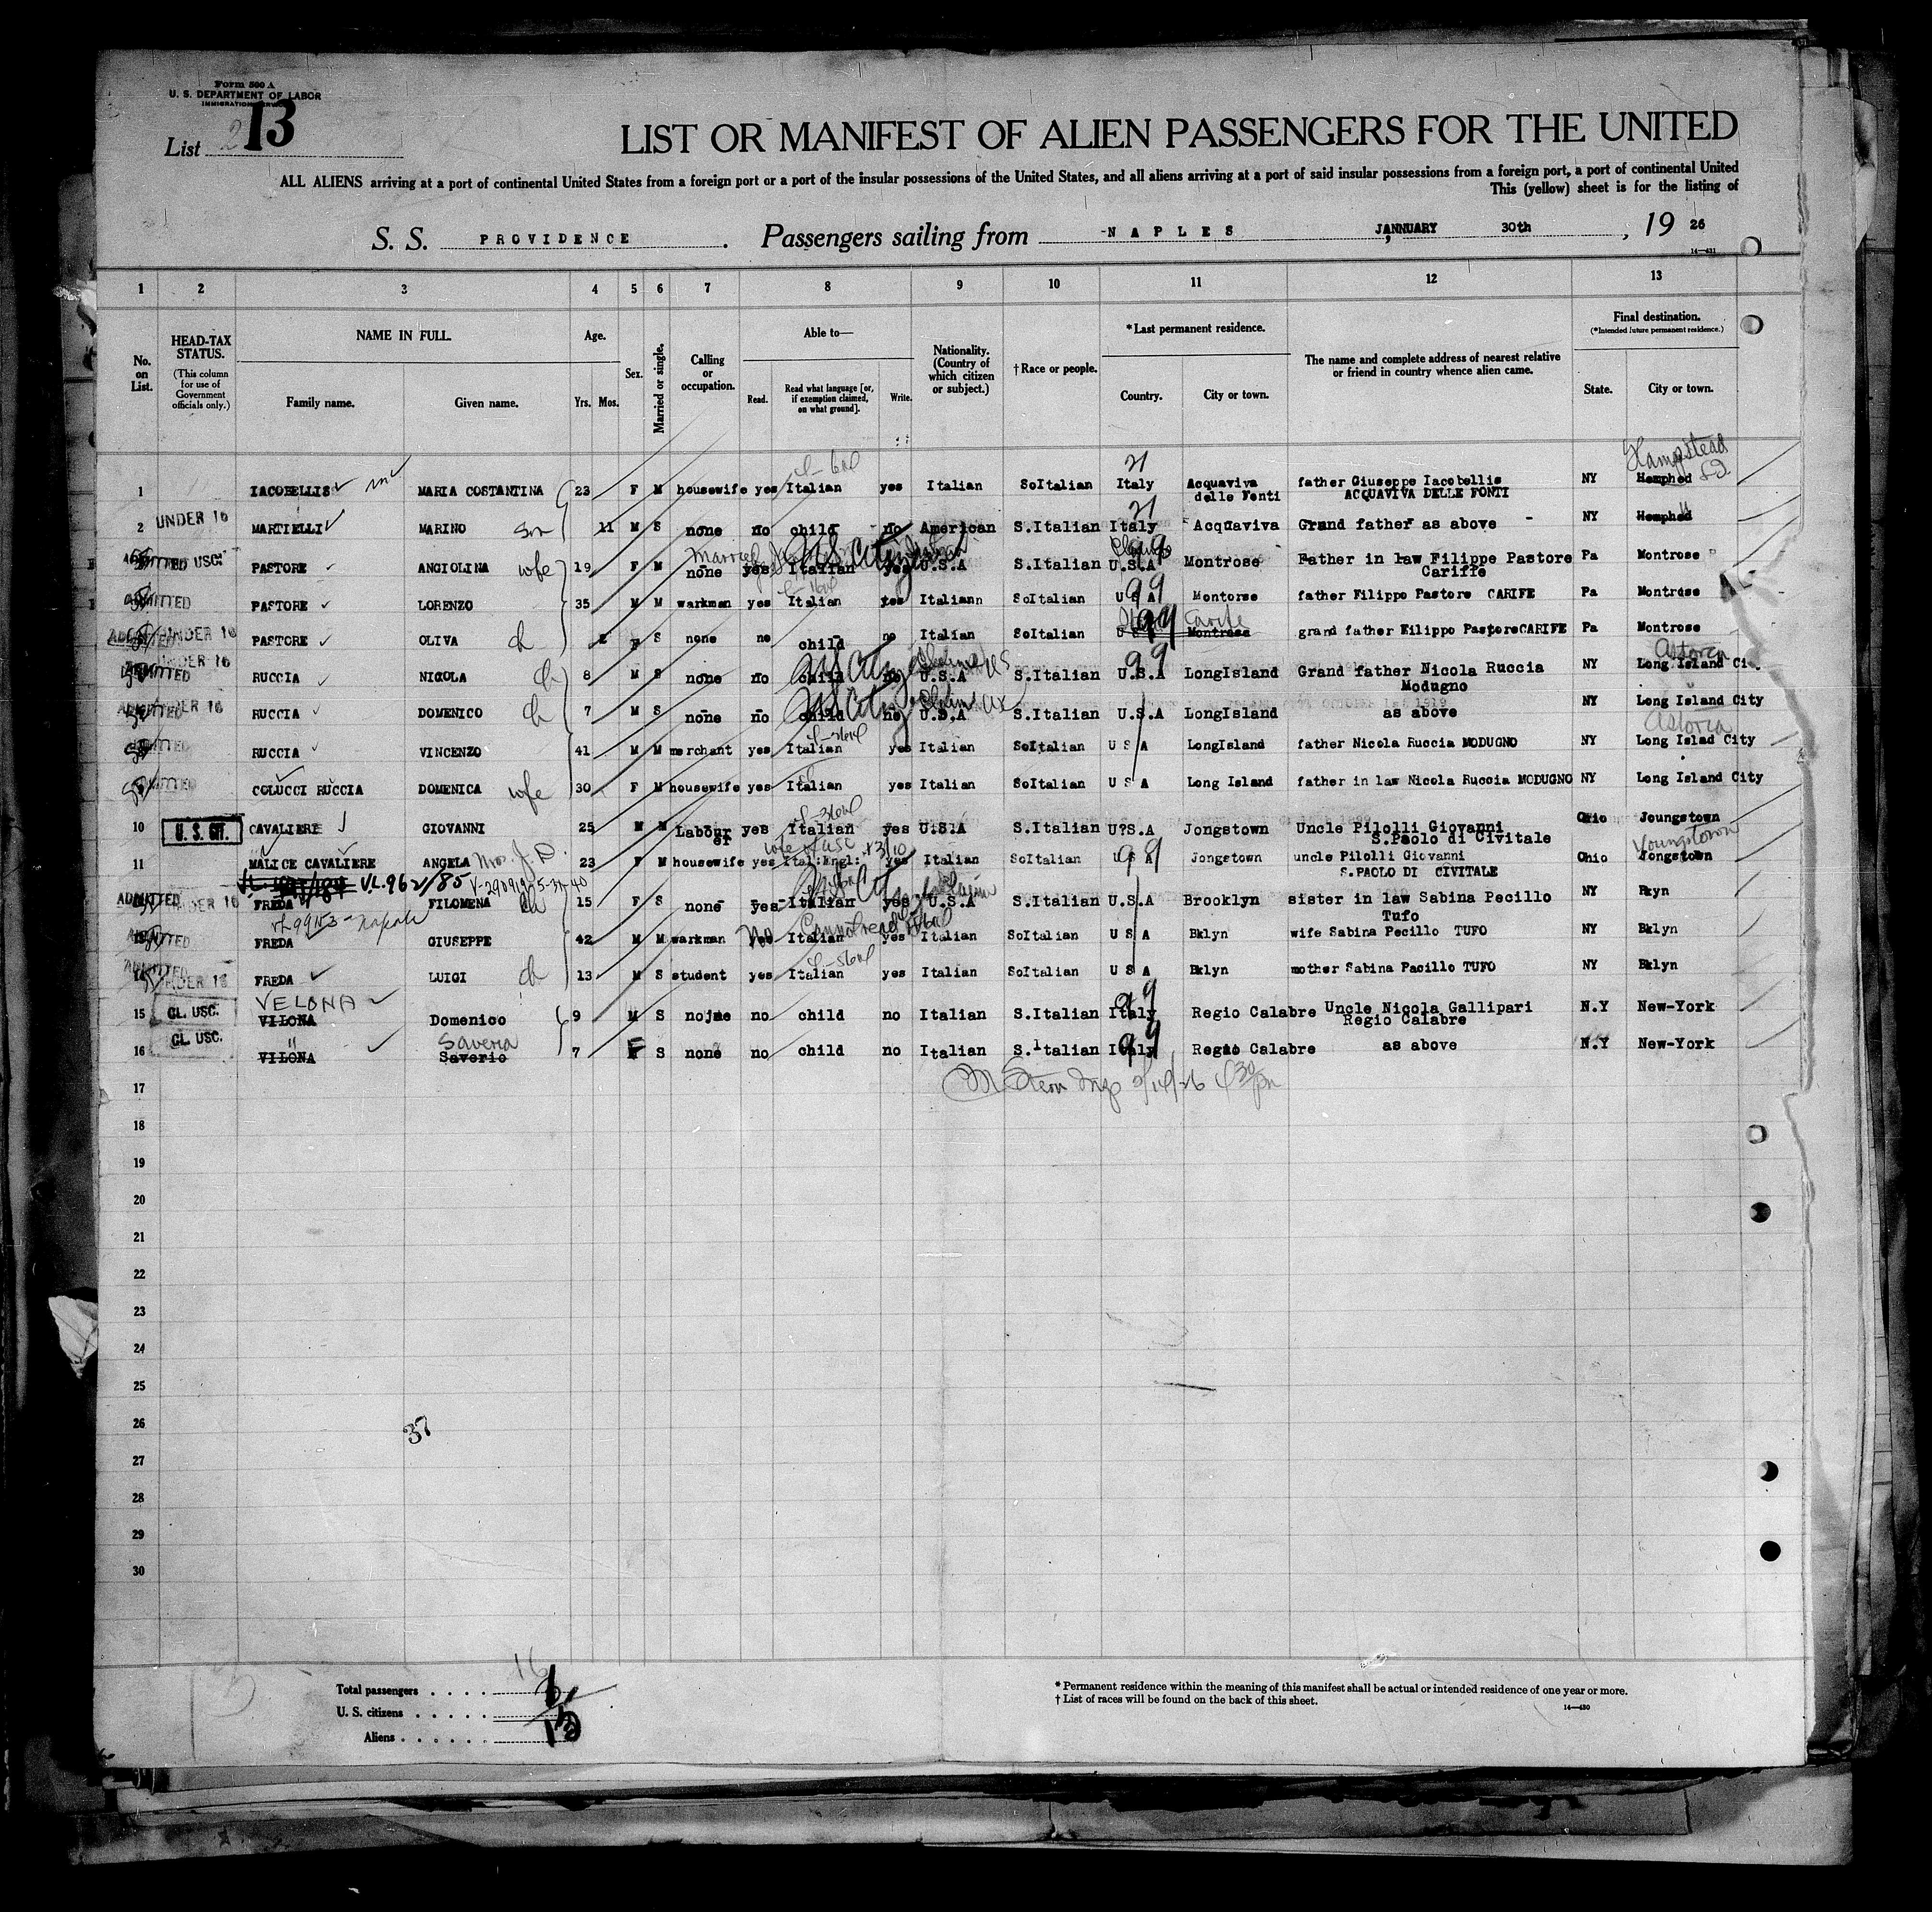 Form 500 A
U. S. DEPARTMENT OF LABOR
List 2 13
LIST OR MANIFEST OF ALIEN PASSENGERS FOR THE UNITED
ALL ALIENS arriving at a port of continental United States from a foreign port or a port of the insular possessions of the United States, and all aliens arriving at a port of said insular possessions from a foreign port, a port of continental United
This (yellow) sheet is for the listing of
S. S. PROVIDENCE . Passengers sailing from NAPLES JANNUARY 30th , 19 26
1 2 3 4 5 6 7 8 9 10 11 12 13
No. on List. HEAD-TAX STATUS. (This column for use of Government officials only.) NAME IN FULL. Family name. Given name. Age. Yrs. Mos. Sex. Married or single. Calling or occupation. Able to— Read. Read what language [or, if exemption claimed, on what ground]. Write. Nationality. (Country of which citizen or subject.) †Race or people. *Last permanent residence. Country. City or town. The name and complete address of nearest relative or friend in country whence alien came. Final destination. (*Intended future permanent residence.) State. City or town.
21 Hampstead
1 IACOBELLIS MARIA COSTANTINA 23 F M housewife yes Italian yes Italian SoItalian Italy Acquaviva delle Fonti father Giuseppe Iacobellis ACQUAVIVA DELLE FONTI NY Hemphed
21
2 UNDER 16 MARTIELLI MARINO son 11 M S none no child no American S.Italian Italy Acquaviva Grand father as above - NY Hemphed
ADMITTED USC. PASTORE ANGIOLINA wife 19 F M none yes Italian yes U.S.A S.Italian U.S.A Montrose Father in law Filippe Pastore Cariffe Pa Montrose
ADMITTED PASTORE LORENZO 35 M M warkman yes Italian yes Italiann SoItalian U S A 99 Montorse father Filippo Pastore CARIFE Pa Montrose
ADMITTED UNDER 16 PASTORE OLIVA ch F S none no child no Italian SoItalian U S Montrose Carife grand father Filippo Pastore CARIFE Pa Montrose
Astoria
ADMITTED UNDER 16 RUCCIA NICOLA ch 8 M S none no child no U.S.A S.Italian U.S.A 99 LongIsland Grand father Nicola Ruccia Modugno NY Long Island Ci
ADMITTED UNDER 16 RUCCIA DOMENICO ch 7 M S none no child no U.S.A S.Italian U.S.A LongIsland as above NY Long Island City
Astoria
ADMITTED RUCCIA VINCENZO 41 M M merchant yes Italian yes Italian SoItalian U S A LongIsland father Nicola Ruccia MODUGNO NY Long Islad City
ADMITTED COLUCCI RUCCIA DOMENICA wife 30 F M housewife yes Italian yes Italian SoItalian U S A Long Island father in law Nicola Ruccia MODUGNO NY Long Island City
10 U. S. CIT. CAVALIERE GIOVANNI 25 M M Labour er yes Italian yes U.S.A S.Italian U.S.A Jongstown Uncle Pilolli Giovanni S.Paolo di Civitale Ohio Joungstown
wife of USC Youngstown
11 MALICE CAVALIERE ANGELA Mrs. J. D. 23 F M housewife yes Ital:Engl: yes Italian SoItalian U S A 99 Jongstown uncle Pilolli Giovanni S.PAOLO DI CIVITALE Ohio Jongstown
VL.962/85
ADMITTED UNDER 16 FREDA FILOMENA ch 15 F S none yes Italian yes U.S.A S.Italian U.S.A Brooklyn sister in law Sabina Pecillo Tufo NY Bkyn
ADMITTED FREDA GIUSEPPE 42 M M warkman No yes Italian Cannot read yes Italian SoItalian U S A Bklyn wife Sabina Pecillo TUFO NY Bklyn
ADMITTED UNDER 16 FREDA LUIGI ch 13 M S student yes Italian yes Italian SoItalian U S A Bklyn mother Sabina Pacillo TUFO NY Bklyn
VELONA
15 CL. USC. VILONA Domenico 9 M S no no child no Italian S.Italian Italy 99 Regio Calabre Uncle Nicola Gallipari Regio Calabre N.Y New-York
Saveria
16 CL. USC. VILONA Saverio 7 F S none no child no Italian S.Italian Italy 99 Regio Calabre as above N.Y New-York
17
18
19
20
21
22
23
24
25
26
37
27
28
29
30
16
Total passengers . . . .
U. S. citizens . . . . .
Aliens . . . . . .
* Permanent residence within the meaning of this manifest shall be actual or intended residence of one year or more.
† List of races will be found on the back of this sheet.
14—430